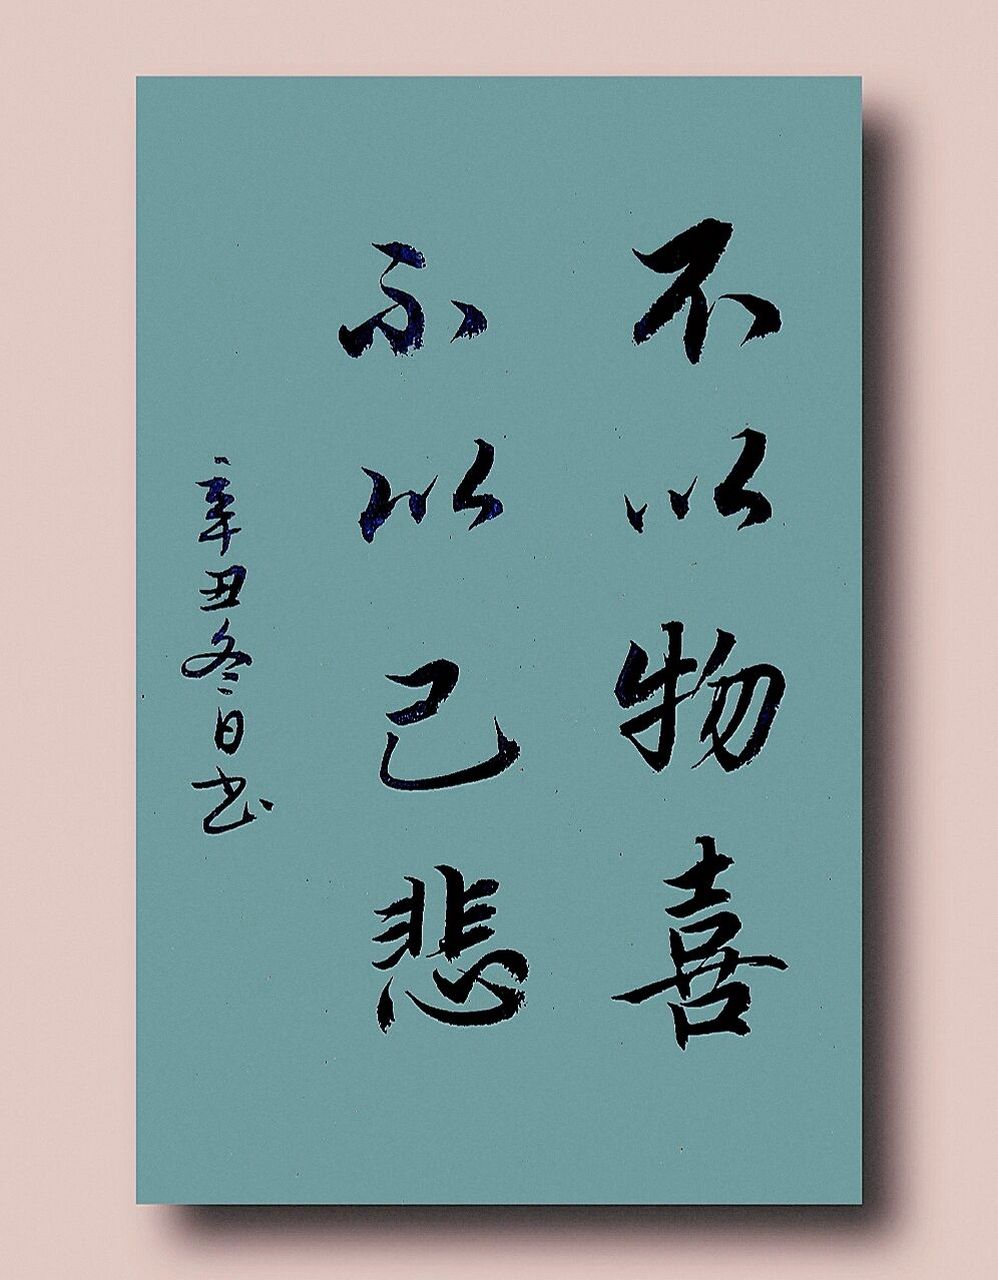 不以物喜
不以己悲
辛丑冬日书